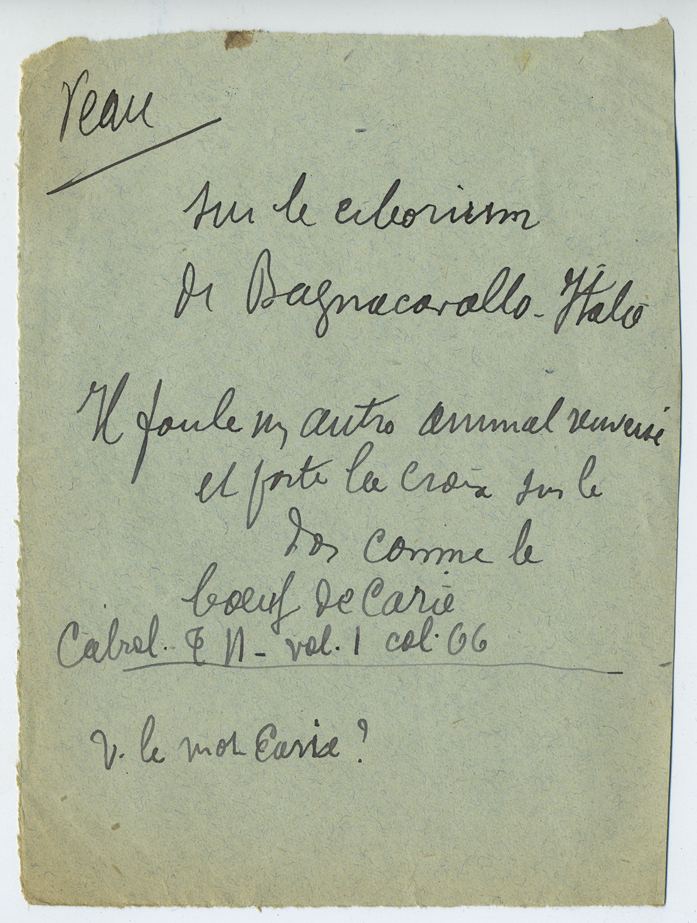 Veau
sur le ciborium
de Bagnacavallo - Italie
Il foule un autre animal renversé
et porte la croix sur le
dos comme le
boeuf de Carie
Cabrol. vol. 1 col. 66
v. le mot Carie ?